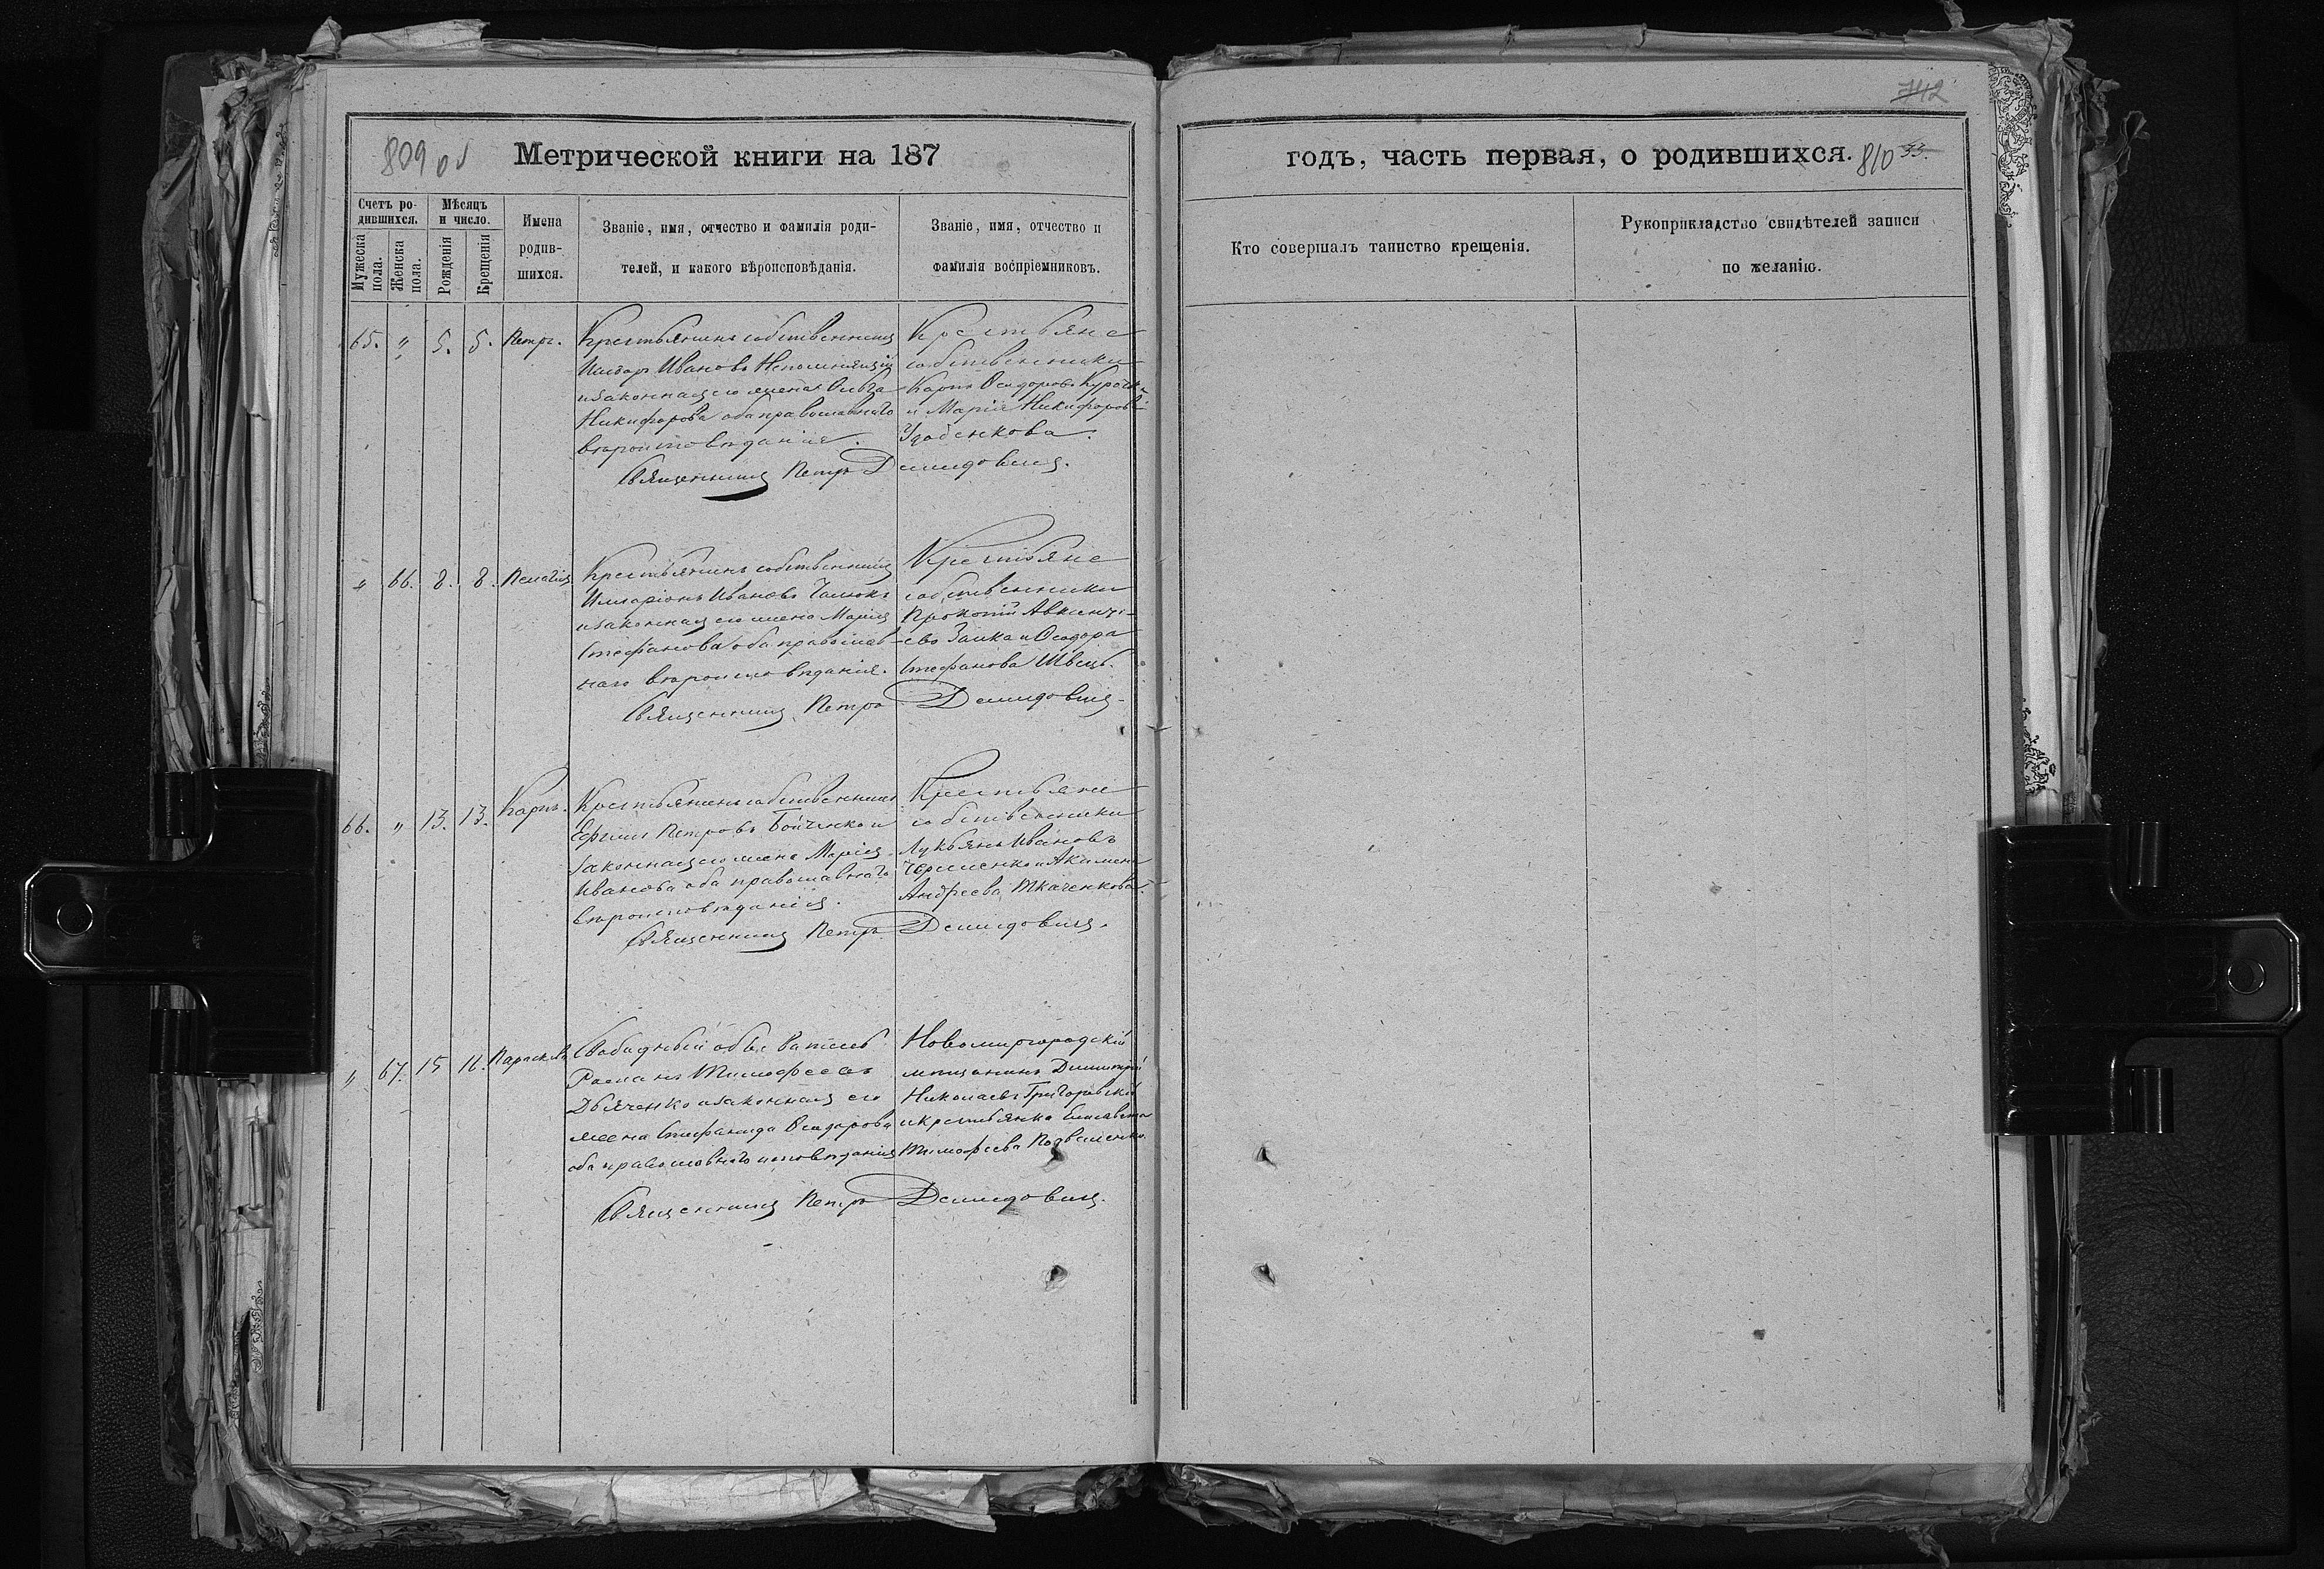 809 об
Метрической книги на 187
Счетъ ро-
дившихся.
Мужеска
пола.
Женска
пола.
Мѣсяцъ
и число.
Рожденія
Крещенія
Имена
родив-
шихся.
Званіе, имя, отчество и фамилія роди-
телей, и какого вѣроисповѣданія.
Званіе, имя, отчество и
фамилія воспріемниковъ.
65. " 5. 5. Петръ.
Крестьянинъ собственникъ
Исидоръ Ивановъ Непомнящій
и законная его жена Ольга
Никифорова оба православнаго
вѣроисповѣданія.
Крестьяне
собственники
Карпъ Ѳедоровъ
и Марія Никифорова
Удобенкова.
Священникъ Петръ Демидовичъ.
" 66. 8. 8. Пелагія
Крестьянинъ собственникъ
Илларіонъ Ивановъ
и законная его жена Марія
Стефанова оба православ-
наго вѣроисповѣданія.
Крестьяне
собственники
Прокопій
Заика и Ѳеодора
Стефанова Швецъ.
Священникъ Петръ Демидовичъ.
66. " 13. 13. Карпъ.
Крестьянинъ собственникъ
Ефимъ Петровъ Бойченко и
законная его жена Марія
Иванова оба православнаго
вѣроисповѣданія.
Крестьяне
собственники
Лукьянъ Ивановъ
и Акилина
Андреева Ткаченкова.
Священникъ Петръ Демидовичъ.
" 67. 15 16. Параскева
Свободный обыватель
Романъ Тимофеевъ
Дьяченко и законная его
жена Стефанида Ѳедорова
оба православнаго исповѣданія
Новомиргородскій
мѣщанинъ Димитрій
Николаевъ Григоровскій
и крестьянка Елисавета
Тимофеева
Священникъ Петръ Демидовичъ.
742
годъ, часть первая, о родившихся. 810 33.
Кто совершалъ таинство крещенія.
Рукоприкладство свидѣтелей записи
по желанію.